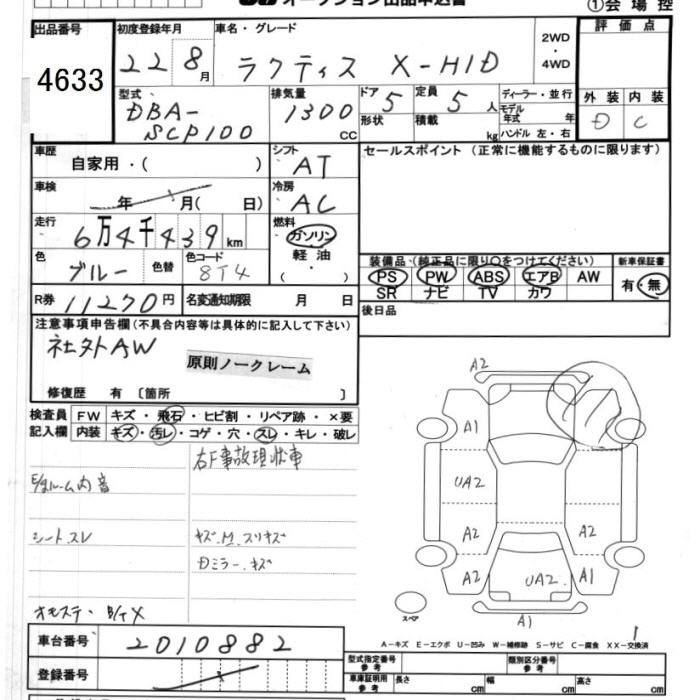 オークション出品申込書
①会場控
出品番号 初度登録年月 車名・グレード 評価点
4633 22 8月 ラクティス X-HID 2WD・4WD
外装 内装
D C
型式 排気量 ドア 定員 ディーラー・並行
DBA-SCP100 1300cc 5 5人 モデル年式 年
形状 積載 kg ハンドル 左・右
車歴 シフト セールスポイント（正常に機能するものに限ります）
自家用・（ ） AT
車検 冷房
年 月（ 日） AC
走行 燃料
6万4千439km ガソリン 軽油（・）
色 色替 色コード 装備品（純正品に限り〇をつけてください） 新車保証書
ブルー 8T4 PS PW ABS エアB AW 有・無
SR ナビ TV カワ
R券 11270円 名変通知期限 月 日 後日品
注意事項申告欄（不具合内容等は具体的に記入して下さい）
社外AW
原則ノークレーム
修復歴 有〔箇所 〕
検査員記入欄 FW キズ・飛石・ヒビ割・リペア跡・×要
内装 キズ・汚レ・コゲ・穴・スレ・キレ・破レ
右F事故現状車
シートスレ キズ.M.スリキズ
Dミラーキズ
A2
A1
UA2
A2 A2
A2 UA2 A1
A1
スペア
A－キズ E－エクボ U－凹み W－補修跡 S－サビ C－腐食 XX－交換済
車台番号 2010882
登録番号
型式指定番号参考 類別区分番号参考
車庫証明用参考 長さ cm 幅 cm 高さ cm